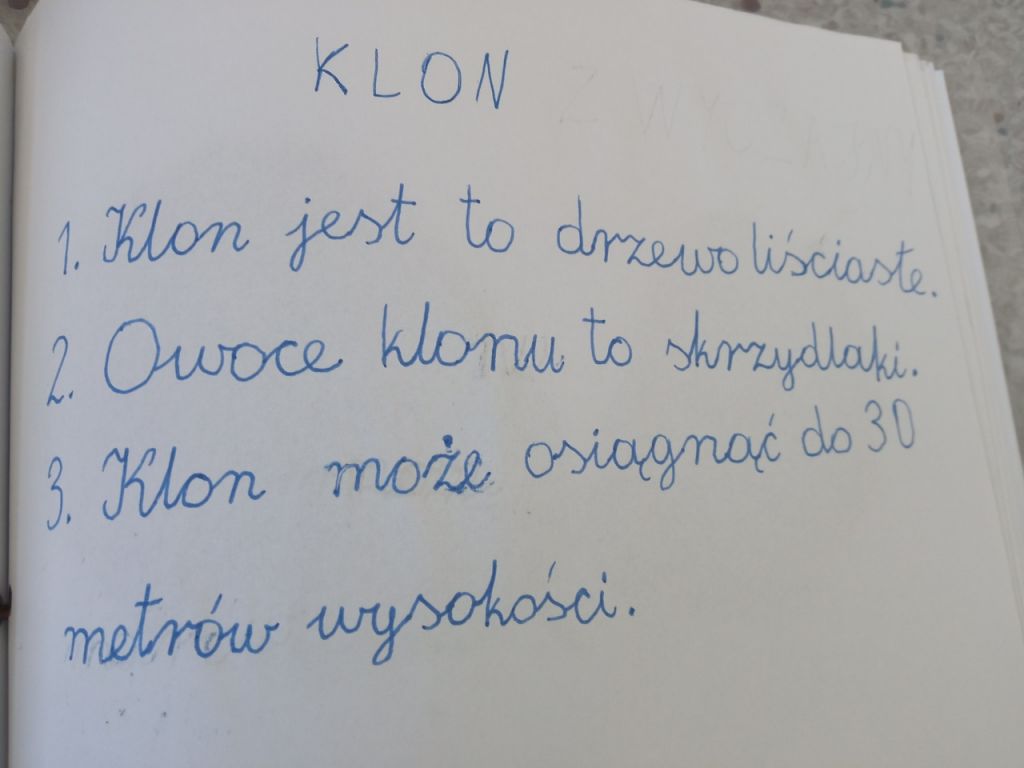 KLON
1. Klon jest to drzewo liściaste.
2. Owoce klonu to skrzydlaki.
3. Klon może osiągnąć do 30
metrów wysokości.